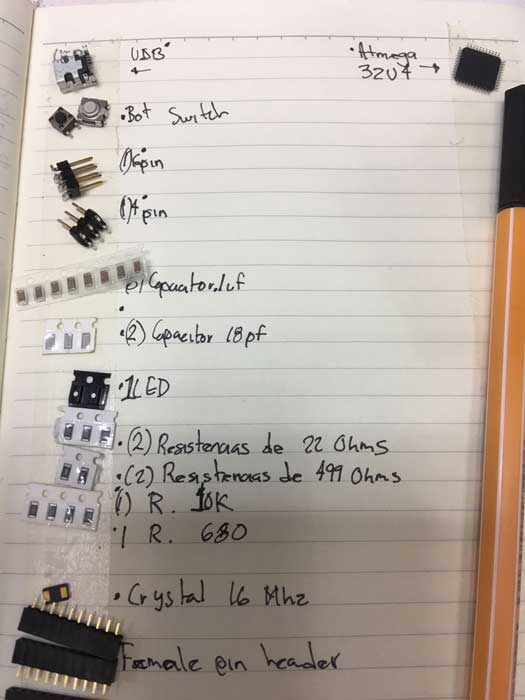 USB
←
• Atmega
32U4 →
• Bot Switch
(1) 6pin
(1) 4 pin
Capacitor .1uf
•
• (2) Capacitor 18pf
• 1 LED
• (2) Resistencias de 22 Ohms
• (2) Resistencias de 499 Ohms
(1) R. 10K
• 1 R. 680
• Crystal 16 Mhz
Female pin header